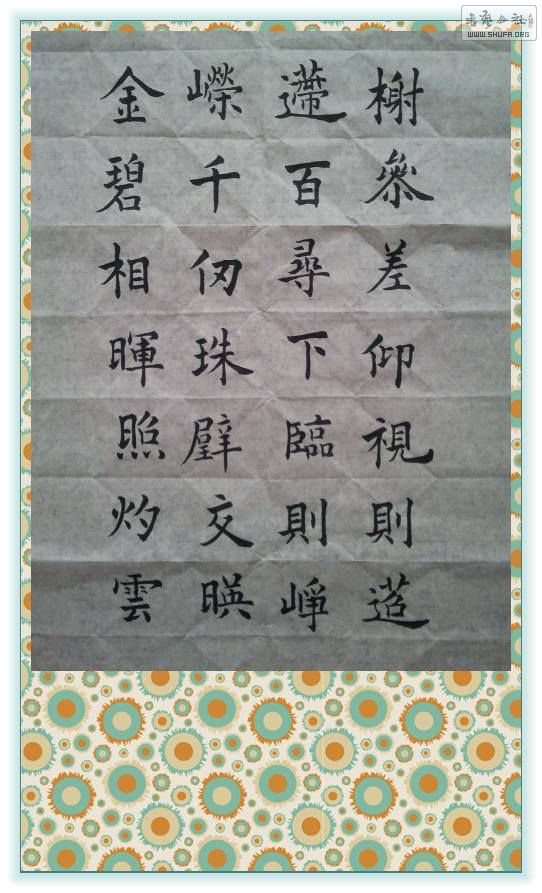 榭叅差仰視則迢
遰百尋下臨則崢
嶸千仞珠璧交暎
金碧相暉照灼雲
書藝公社
WWW.SHUFA.ORG